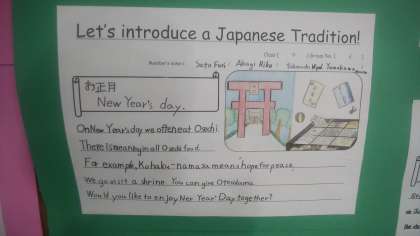 Let's introduce a Japanese Tradition!
Class ( ) Group No. ( )
Member's name :
お正月
New Year's day.
On New Year's day we often eat Osechi.
There is meaning in all Osechi food.
For example, Kohaku-namasu means "hope for peace.
We go visit a shrine. You can give Otoshidama.
Would you like to enjoy New Year' Day together?